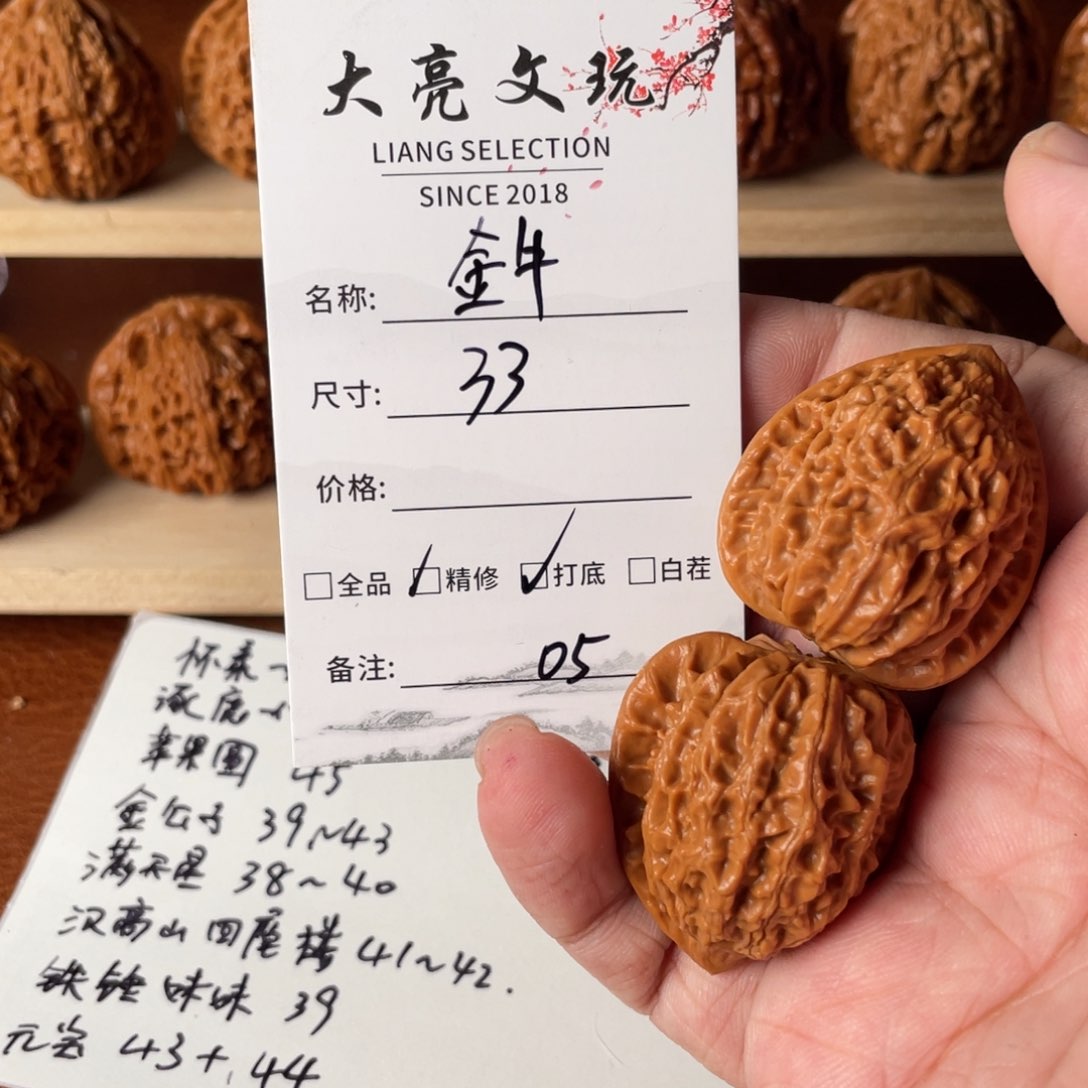 大亮文玩
LIANG SELECTION
SINCE 2018
名称: 金牛
尺寸: 33
价格:
全品 精修 打底 白茬
备注: 05
怀来
涿鹿
苹果圆 45
金公子 39~43
满天星 38~40
汉高山 四座楼 41~42.
铁锉 味味 39
元宝 43+, 44